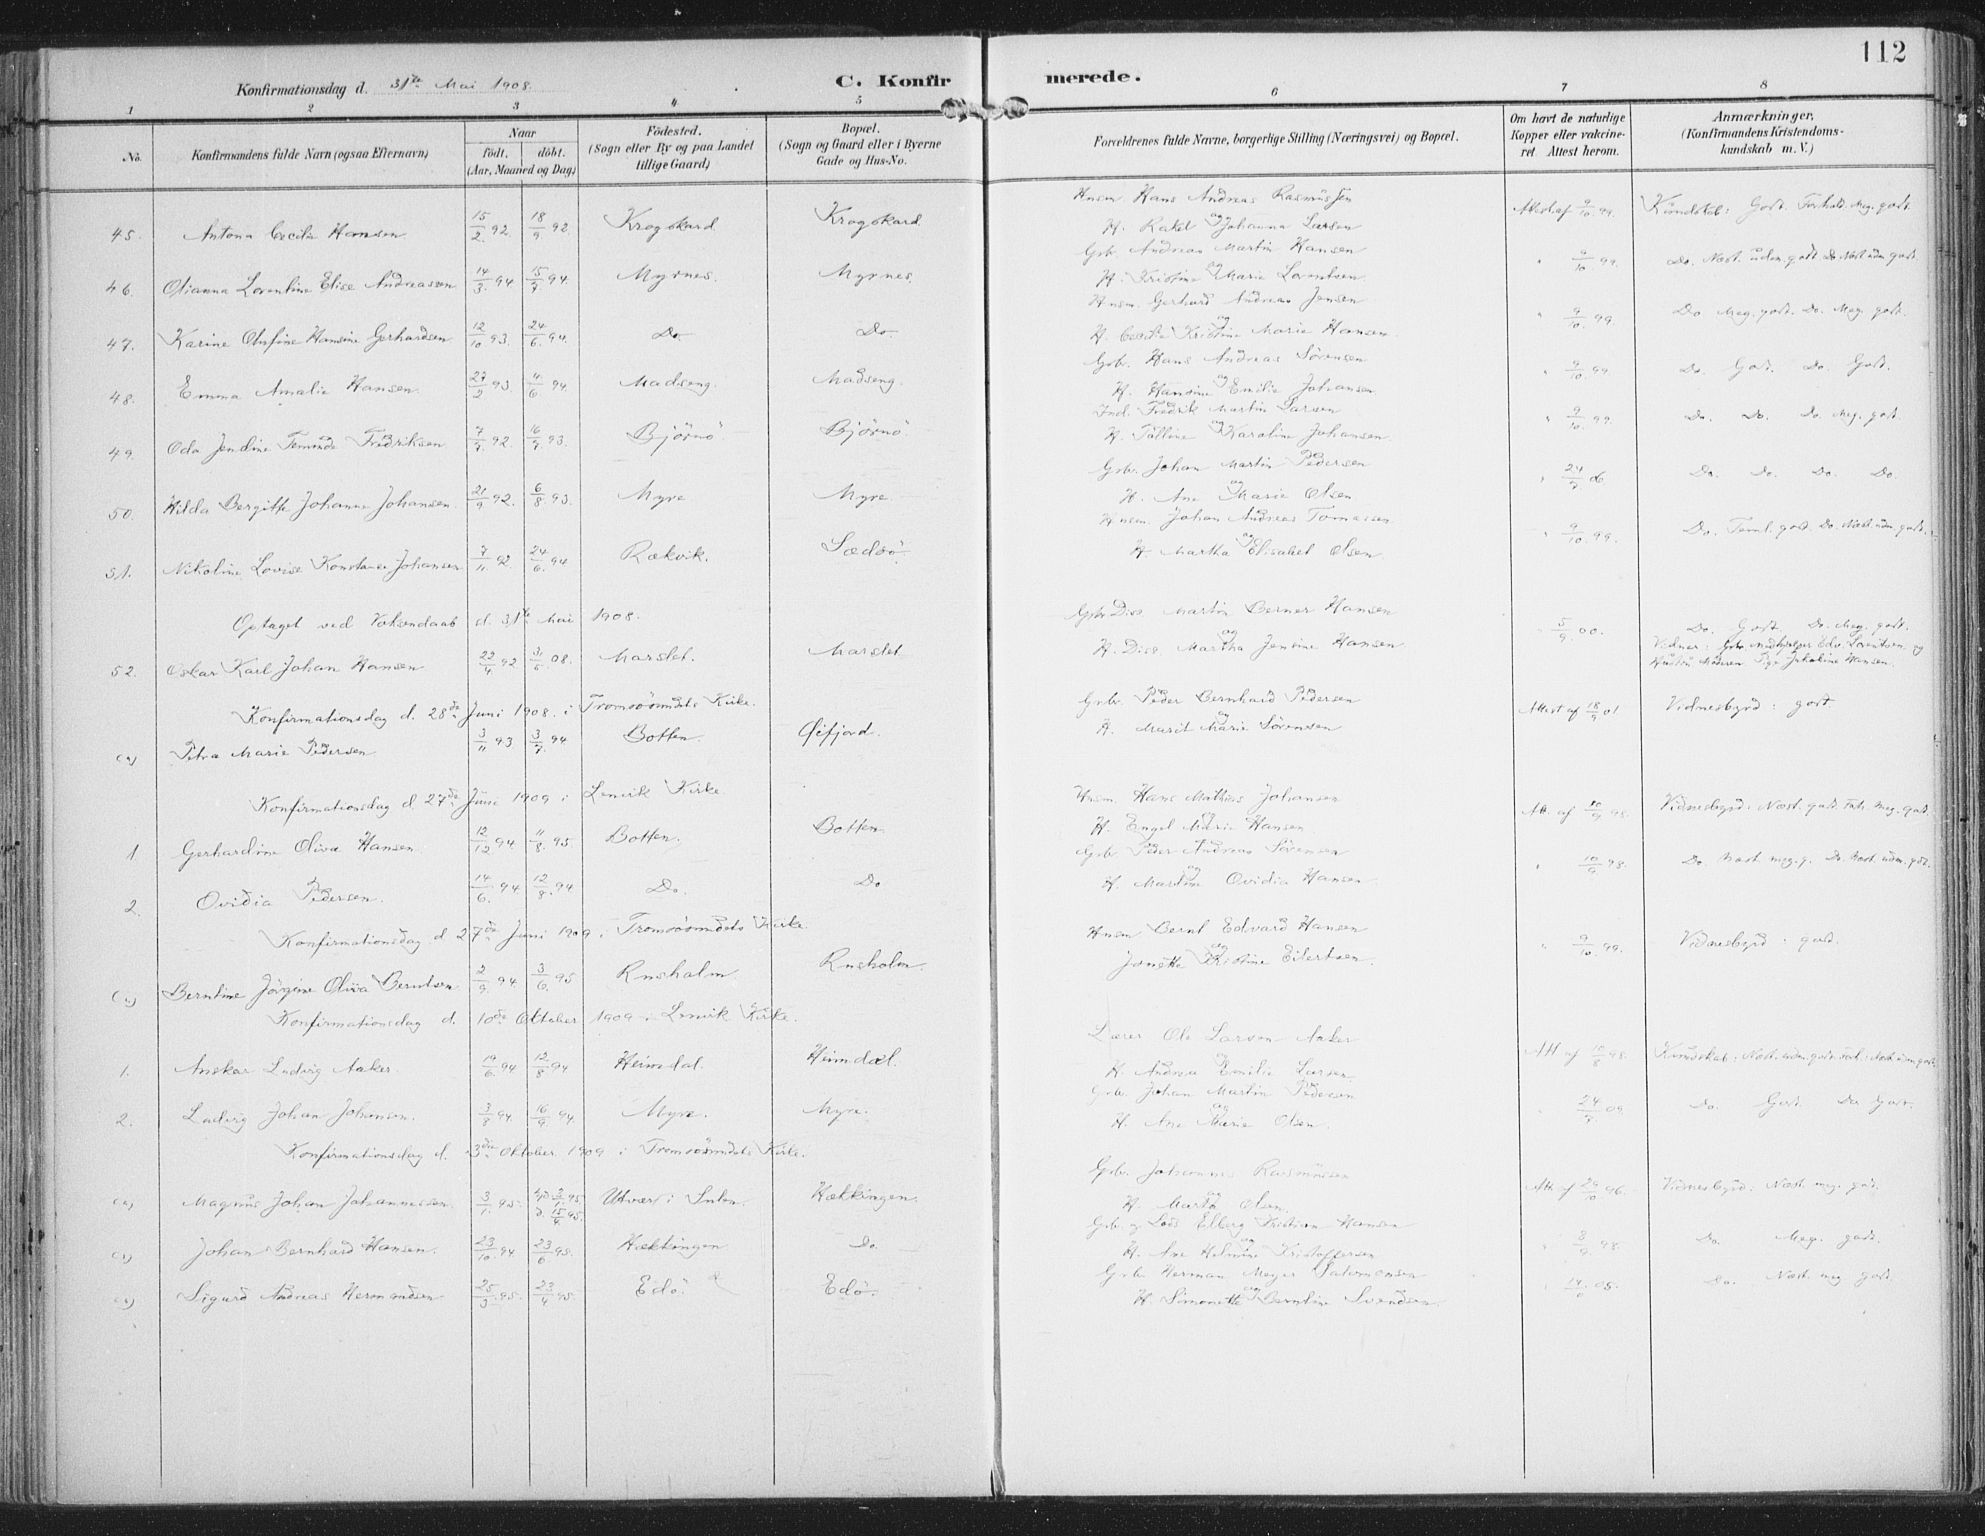 112
Konfirmationsdag d. 31te Mai 1908.
C. Konfirmerede.
1 2 3 4 5 6 7 8
No. Konfirmandens fulde Navn (ogsaa Efternavn) Naar født. døbt. (Aar, Maaned og Dag) Födested. (Sogn eller By og paa Landet tillige Gaard) Bopæl. (Sogn og Gaard eller i Byerne Gade og Hus-No. Forældrenes fulde Navne, borgerlige Stilling (Næringsvei) og Bopæl. Om havt de naturlige Kopper eller vakcineret. Attest herom. Anmærkninger. (Konfirmandens Kristendomskundskab m. V.)
Hnsm. Hans Andreas Rasmussen
45. Antona Cecilie Hansen 15/2 92 18/9 92 Krogskard Krogskard og H. Rakel Johanna Larsen Attest af 9/10 99. Kundskab: Godt. Forhold. Meg. godt.
Grbr. Andreas Martin Hansen
46. Olianna Lorentine Elise Andreassen 14/3 94 15/7 94 Myrnes. Myrnes. og H. Kristine Marie Lorentsen " 9/10 99. Do. Næst. udm. godt Do Næst udm. godt.
Hnsm. Gerhard Andreas Jensen
47. Karine Olufine Hansine Gerhardsen 12/10 93. 24/6 94. Do. Do. og H. Cecilie Kristine Marie Hansen. " 9/10 99. Do Meg. godt. Do. Meg. godt.
Grbr. Hans Andreas Sörensen
48. Emma Amalie Hansen. 27/2 93 4/6 94 Madseng. Madseng. og H. Hansine Emilie Johansen " 9/10 99. Do. Godt. Do. Godt.
Ind. Fredrik Martin Larsen
49. Oda Jendine Fredriksen 7/7 92 16/7 93. Björnö Björnö og H. Karoline Johansen " 9/10 99. Do. Do. Do. Meg. godt.
Grbr. Johan Martin Pedersen
50. Hilda Bergitte Johanne Johansen. 21/9 92. 6/8 93. Myre Myre. og H. Ane Marie Olsen " Do. Do. Do. Do.
Hnsm. Johan Andreas Tomassen
51. Nikoline Lovise Konstanse Johansen 7/11 92. 24/6 94 Rækvik. og H. Martha Elisabet Olsen 9/10 99. Do. Teml. godt. Do. Næst udm. godt.
Optaget ved Voksendaab d. 31te Mai 1908.
Grbr. Diss. Martin Berner Hansen
52. Oskar Karl Johan Hansen 22/4 92 31/5 08. Marslet. Marslet og H. Diss. Martha Jensine Hansen 5/9 00. Do. Godt. Do. Meg. godt.
Vidner: Grbr. Medhjælper Edv. Lorentsen og Moderen Pige Jakobine Hansen.
Konfirmationsdag d. 28de Juni 1908. i Tromsösundets Kirke.
Grbr. Peder Bernhard Pedersen
Petra Marie Pedersen 3/11 93 3/7 94 Botten. Öifjord. og H. Marit Marie Sörensen Attest af 18/9 01 Vidnesbyrd: godt
Konfirmationsdag d. 27de Juni 1909 i Lenvik Kirke.
Hnsm. Hans Mathias Johansen
1 Gerhardine Oliva Hansen. 12/12 94 11/8 95. Botten. Botten. og H. Engel Marie Hansen Att. af 10/9 98. Vidnesbyrd: Næst. godt. Forh. meg. godt.
Grbr. Peder Andreas Sörensen
2. Ovidia Pedersen. 14/6 94 12/8 94 Do. Do og H. Martine Ovidia Hansen " 10/9 98. Do. Næst. meg. g. Do. Næst. udm. gdt.
Konfirmationsdag d. 27de Juni 1909 i Tromsösundets Kirke.
Hnsm Bernt Edvard Hansen
Berntine Jörgine Oliva Berntsen 2/9 94 3/6 95 Rusholm. Rusholm. og Janette Kristine Eilertsen. " 9/10 99. Vidnesbyrd: godt.
Konfirmationsdag d. 10de Oktober 1909 i Lenvik Kirke.
Lærer Ole Larsen Aaker
1. Anskar Ludvig Aaker. 14/6 94 12/8 94 Heimdal. Heimdal. og H. Andrea Emilie Larsen Att af 10/8 98. Kundskab: Næst. udm. godt. Forh.: Næst. udm godt.
Grbr. Johan Martin Pedersen
2. Ludvig Johan Johansen. 3/8 94. 16/9 94. Myre. Myre. og H. Ane Marie Olsen. " Do. Godt. Do Godt.
Konfirmationsdag d. 3die Oktober 1909 i Tromsösundets Kirke.
Grbr. Johannes Rasmussen
Magnus Johan Johannessen. 3/1 95. Utvær i Sulen. Hækkingen. og H. Marta Olsen. Att af 29/10 06. Vidnesbyrd: Næst. meg. godt.
Grbr. og Lods Elberg Kristian Hansen
Johan Bernhard Hansen. 23/10 94. 23/6 95. Hækkingen Do. og H. Ane Helmine Kristoffersen " Do. Meg. godt.
Grbr. Herman Meyer Salomonsen
Sigurd Andreas Hermandsen 25/3 95. 23/9 95. Edö. Edö. og H. Simonette Berntine Svendsen. Do. Næst. meg. godt.